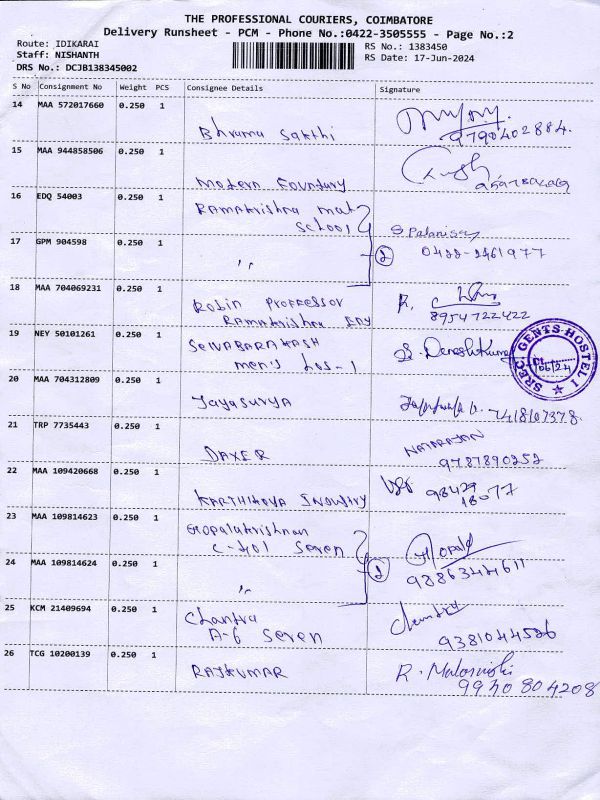 THE PROFESSIONAL COURIERS, COIMBATORE
Delivery Runsheet - PCM - Phone No.:0422-3505555 - Page No.:2
Route: IDIKARAI
Staff: NISHANTH
DRS No.: DCJB138345002
RS No.: 1383450
RS Date: 17-Jun-2024
S No Consignment No Weight PCS Consignee Details Signature
14 MAA 572017660 0.250 1
Bhrama Sakthi 9790402884.
15 MAA 944858506 0.250 1
Modern Foundury
16 EDQ 54003 0.250 1 Ramakrishna mat
School S. Palanisay
17 GPM 904598 0.250 1 " 2 0422-2461977
18 MAA 704069231 0.250 1
Robin Proffessor R.
Ramakrishna 8954722422
19 NEY 50101261 0.250 1 SELVABARAKASH
men's hos-1 S. Dineshkumar
SREC GENTS HOSTEL I
20 MAA 704312809 0.250 1
Jayasurya
21 TRP 7735443 0.250 1 NATARAJAN
DAXER 9787890252
22 MAA 109420668 0.250 1
KARTHIKAYA Industry 98429
18077
23 MAA 109814623 0.250 1 Gopalakrishnan
C-401 Seven Gopal
24 MAA 109814624 0.250 1 " 2 9886344611
25 KCM 21409694 0.250 1 Chandra Chandra
A-6 Seven 9381044586
26 TCG 10200139 0.250 1
RAJKUMAR R.
9940804208